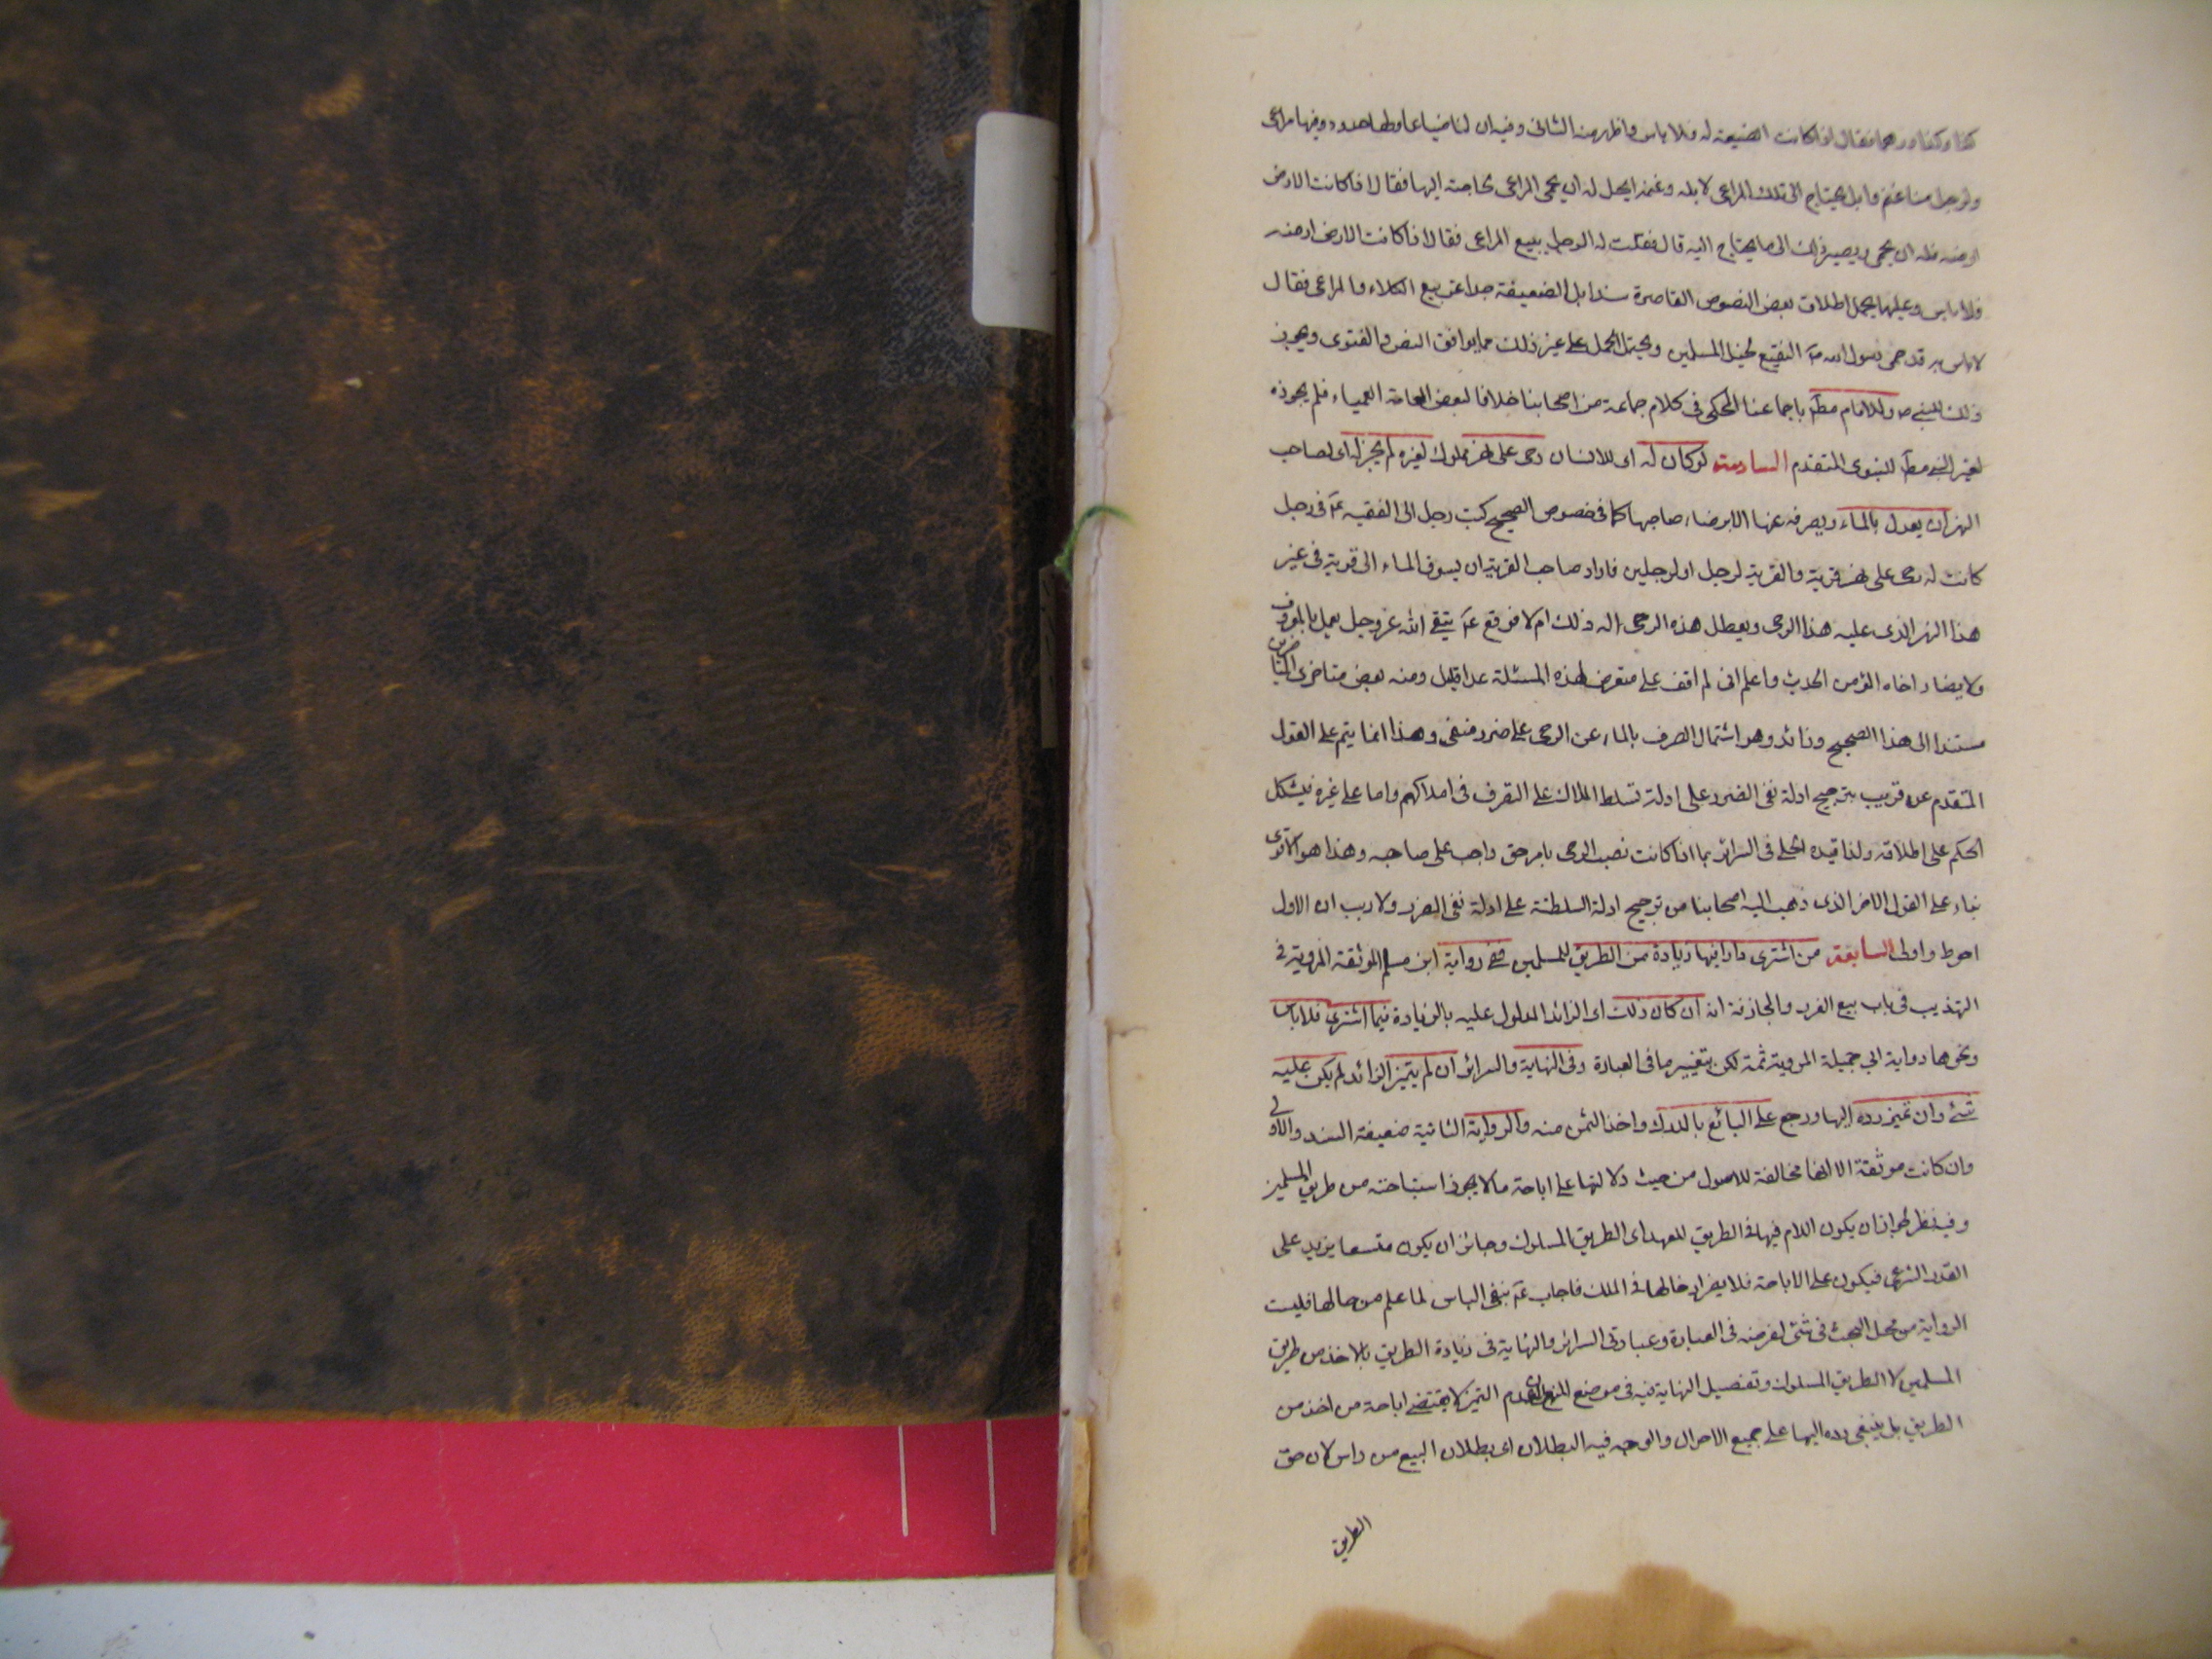 بكذا وكذا درهما فقال اذا كانت الضيعة له فلا باس واظهر منه الثانى وفيه ان لنا ضياعا ولها حدود وفيها مراعى
ولرجل منا غنم وابل يحتاج الى تلك المراعى لابله وغنمه ايحل له ان يحمى المراعى لحاجته اليها فقال اذا كانت الارض
ارضه فله ان يحمى ويصير ذلك الى ما يحتاج اليه قال فقلت له الرجل يبيع المراعى فقال اذا كانت الارض ارضه
فلا باس وعليها يحمل اطلاق بعض النصوص القاصرة سندا بل الضعيفة جدا عن بيع الكلاء والمراعى فقال
لا باس به قد حمى رسول الله ص النقيع لخيل المسلمين ويحتمل الحمل على غير ذلك مما يوافق النص والفتوى ويجوز
ذلك للنبى ص وللامام مطم باجماعنا المحكى فى كلام جماعة من اصحابنا خلافا لبعض العامة العمياء فلم يجوزه
لغير النبى مطم للنبوى المتقدم السادسة لو كان له اى للانسان رحى على نهر مملوك لغيره لم يجز له اى لصاحب
النهر ان يعدل بالماء ويصرفه عنها الا برضاء صاحبها كما فى خصوص الصحيح كتب رجل الى الفقيه عم فى رجل
كانت له رحى على نهر قرية والقرية لرجل او لرجلين فاراد صاحب القرية ان يسوق الماء الى قرية فى غير
هذا النهر الذى عليه هذا الرحى ويعطل هذه الرحى اله ذلك ام لا فوقع عم يتقى الله عز وجل يعمل بالمعروف
ولا يضار اخاه المؤمن الحديث واعلم انى لم اقف على متعرض لهذه المسئلة عدا قليل ومنه بعض متاخرى المتاخرين
مستندا الى هذا الصحيح وزائد وهو اشتمال الصرف بالماء عن الرحى على ضرر منفى وهذا انما يتم على القول
المتقدم عن قريب بترجيح ادلة نفى الضرر على ادلة تسلط الملاك على التصرف فى املاكهم واما على غيره فيشكل
الحكم على اطلاقه ولذا قيده الحلى فى السرائر بما اذا كانت نصب الرحى بامر حق واجب على صاحبه وهذا هو الاقوى
بناء على القول الاخر الذى ذهب اليه اصحابنا من ترجيح ادلة السلطنة على ادلة نفى الضرر ولا ريب ان الاول
احوط واولى السابعة من اشترى دارا فيها زيادة من الطريق للمسلمين ففى رواية ابن مسلم الموثقة المروية فى
التهذيب فى باب بيع الغرر والمجازفة انه ان كان ذلك اى الزائد المدلول عليه بالزيادة فيما اشترى فلا باس
ونحوها رواية ابى جميلة المروية ثمة لكن بتغيير ما فى العبارة وفى النهاية والسرائر ان لم يتميز الزائد لم يكن عليه
شئ وان تميز رده اليها ورجع على البائع بالدرك واخذ الثمن منه والرواية الثانية ضعيفة السند والاولى
وان كانت موثقة الا انها مخالفة للاصول من حيث دلالتها على اباحة ما لا يجوز استباحته من طريق المسلمين
وفيه نظر لجواز ان يكون اللام فيها فى الطريق للعهد اى الطريق المسلوك وجائز ان يكون متسعا يزيد على
القدر الشرعى فيكون على الاباحة فلا يضر ادخالها فى الملك فاجاب عم بنفى الباس لما علم من حالها فليست
الرواية من محل البحث فى شئ لفرضه فى العبارة وعبارتى السرائر والنهاية فى زيادة الطريق بالاخذ من طريق
المسلمين لا الطريق المسلوك وتفصيل النهاية فيه فى موضع المنع لان عدم التميز لا يقتضى اباحة من اخذ من
الطريق بل ينبغى رده اليها على جميع الاحوال والوجه فيه البطلان اى بطلان البيع من راس لان حق
الطريق